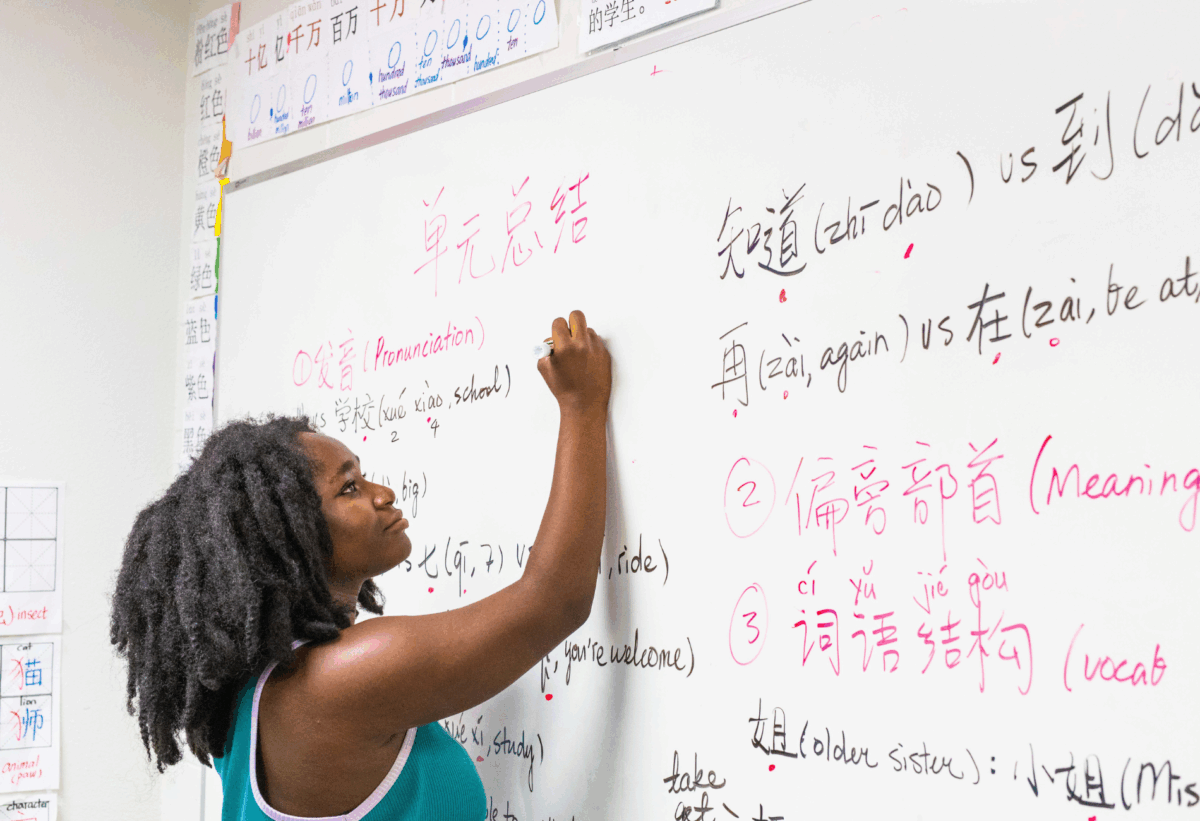 的学生。
十亿 亿 千万 百万 十万
billion hundred million ten million million hundred thousand ten thousand thousand hundred ten
粉红色
红色
橙色
黄色
绿色
蓝色
紫色
黑色
insect
cat
猫
lion
狮
animal
(paws)
character
单元总结
①发音(Pronunciation)
vs 学校(xué xiào, school)
2 4
, big)
七(qī, 7)
, ride)
, you're welcome)
xué xí, study)
知道(zhī dào) vs 到(dà
再(zài, again) vs 在(zài, be at,
② 偏旁部首(Meaning
cí yǔ jié gòu
③ 词语结构(vocab
姐(older sister): 小姐(Mis
take